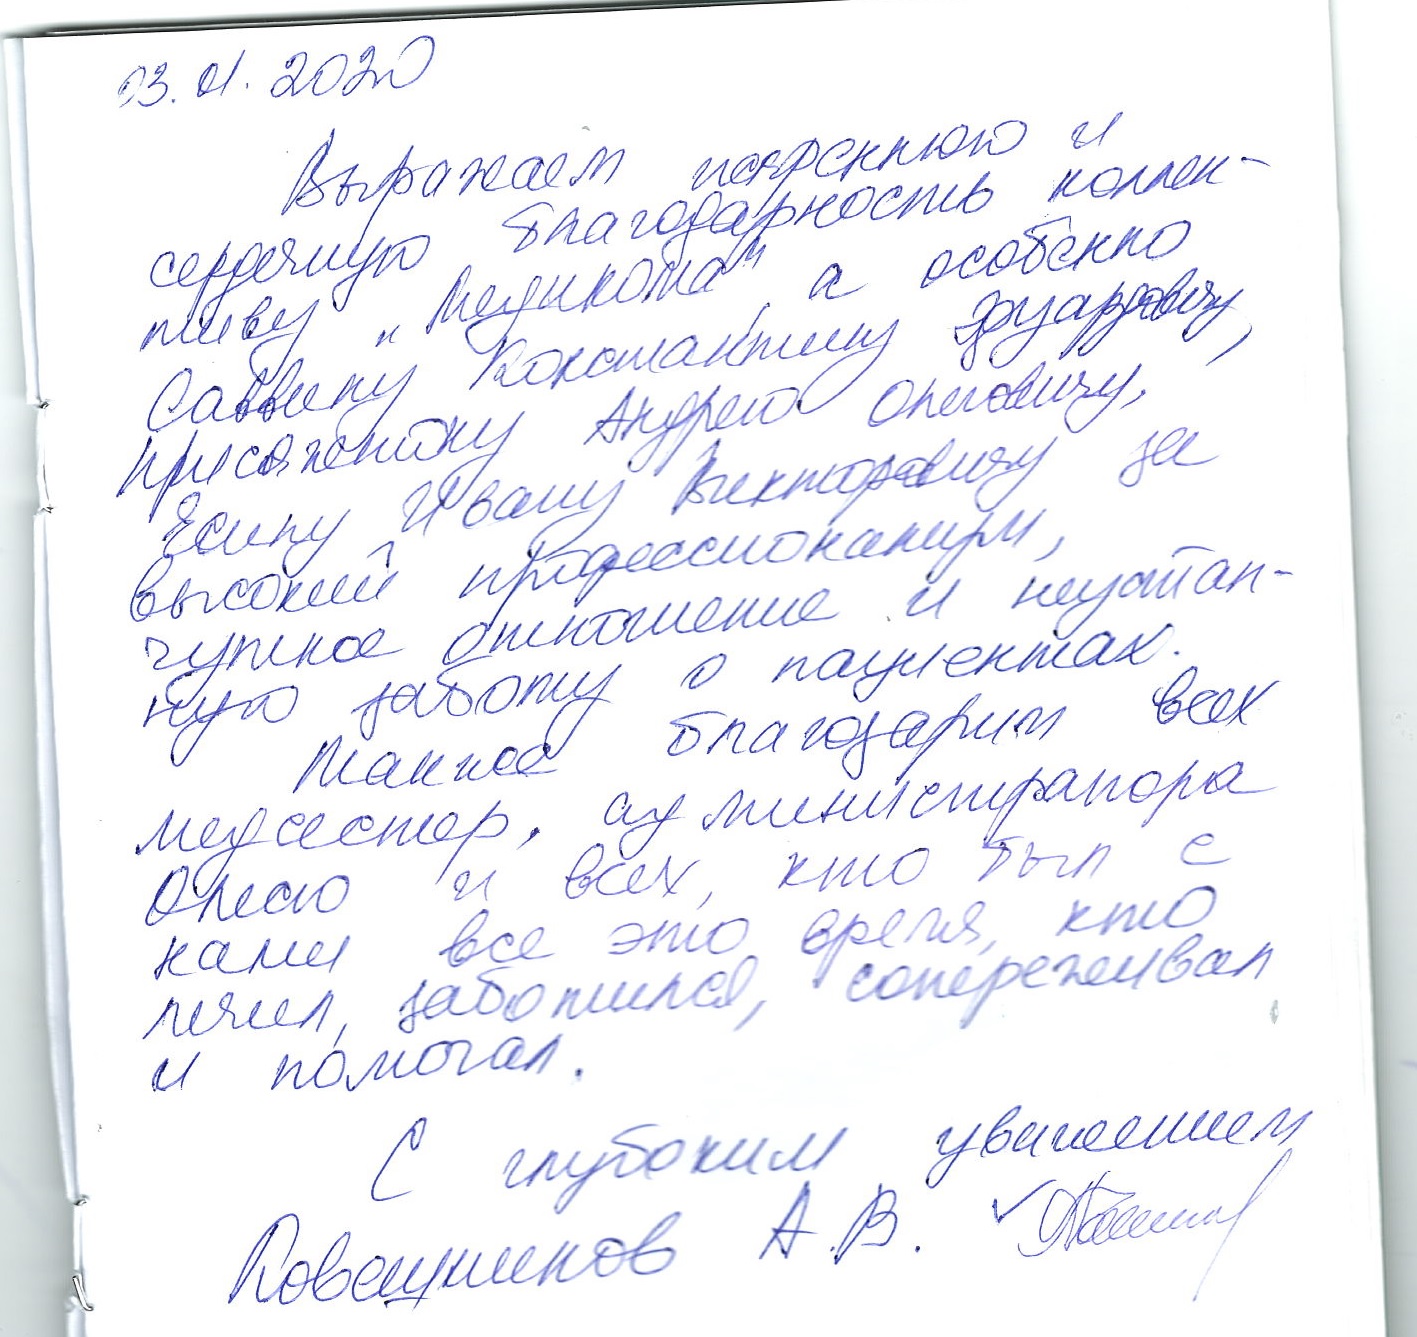 03.01.2020
Выражаем искреннюю и
сердечную благодарность коллек-
тиву „Медикома", а особенно
Саввину Константину Эдуардовичу,
Присяжнюку Андрею Олеговичу,
Есипу Ивану Викторовичу за
высокий профессионализм,
чуткое отношение и неустан-
ную заботу о пациентах.
Также благодарим всех
медсестер, администратора
Олесю и всех, кто был с
нами все это время, кто
лечил, заботился, сопереживал
и помогал.
С глубоким уважением
А.В.